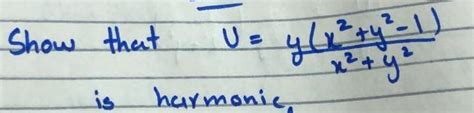 Show that U = y(x²+y²-1)/x²+y²
is harmonic.